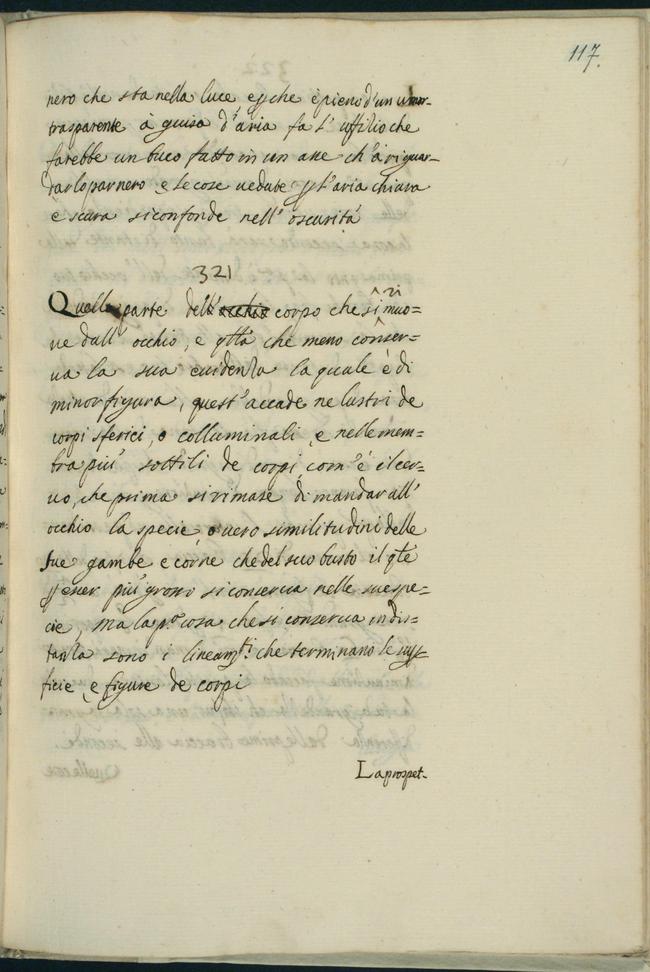 117.
nero che sta nella luce e p che è pieno d'un umor-
trasparente à guisa d'aria fa l' uffitio che
farebbe un buco fatto in un asse ch' à riguar-
darlo par nero e le cose vedute p l'aria chiara
e scura si confonde nell' oscurità
321
Quella parte dell' occhio corpo che si rimuo=
ve dall' occhio, e qlla che meno conser=
va la sua evidenza la quale è di
minor figura, quest' accade ne lustri de
corpi sferici, o colluminali, e nelle mem=
bra più sottili de corpi, com' è il cer=
vo, che prima si rimase di mandar all'
occhio la specie, overo similitudini delle
sue gambe e corne che del suo busto il qle
p esser più grosso si conserva nelle sue spe=
cie, ma la pa cosa che si conserva in dis=
tanza sono i lineamti che terminano le sup=
ficie, e figure de corpi
La prospet-